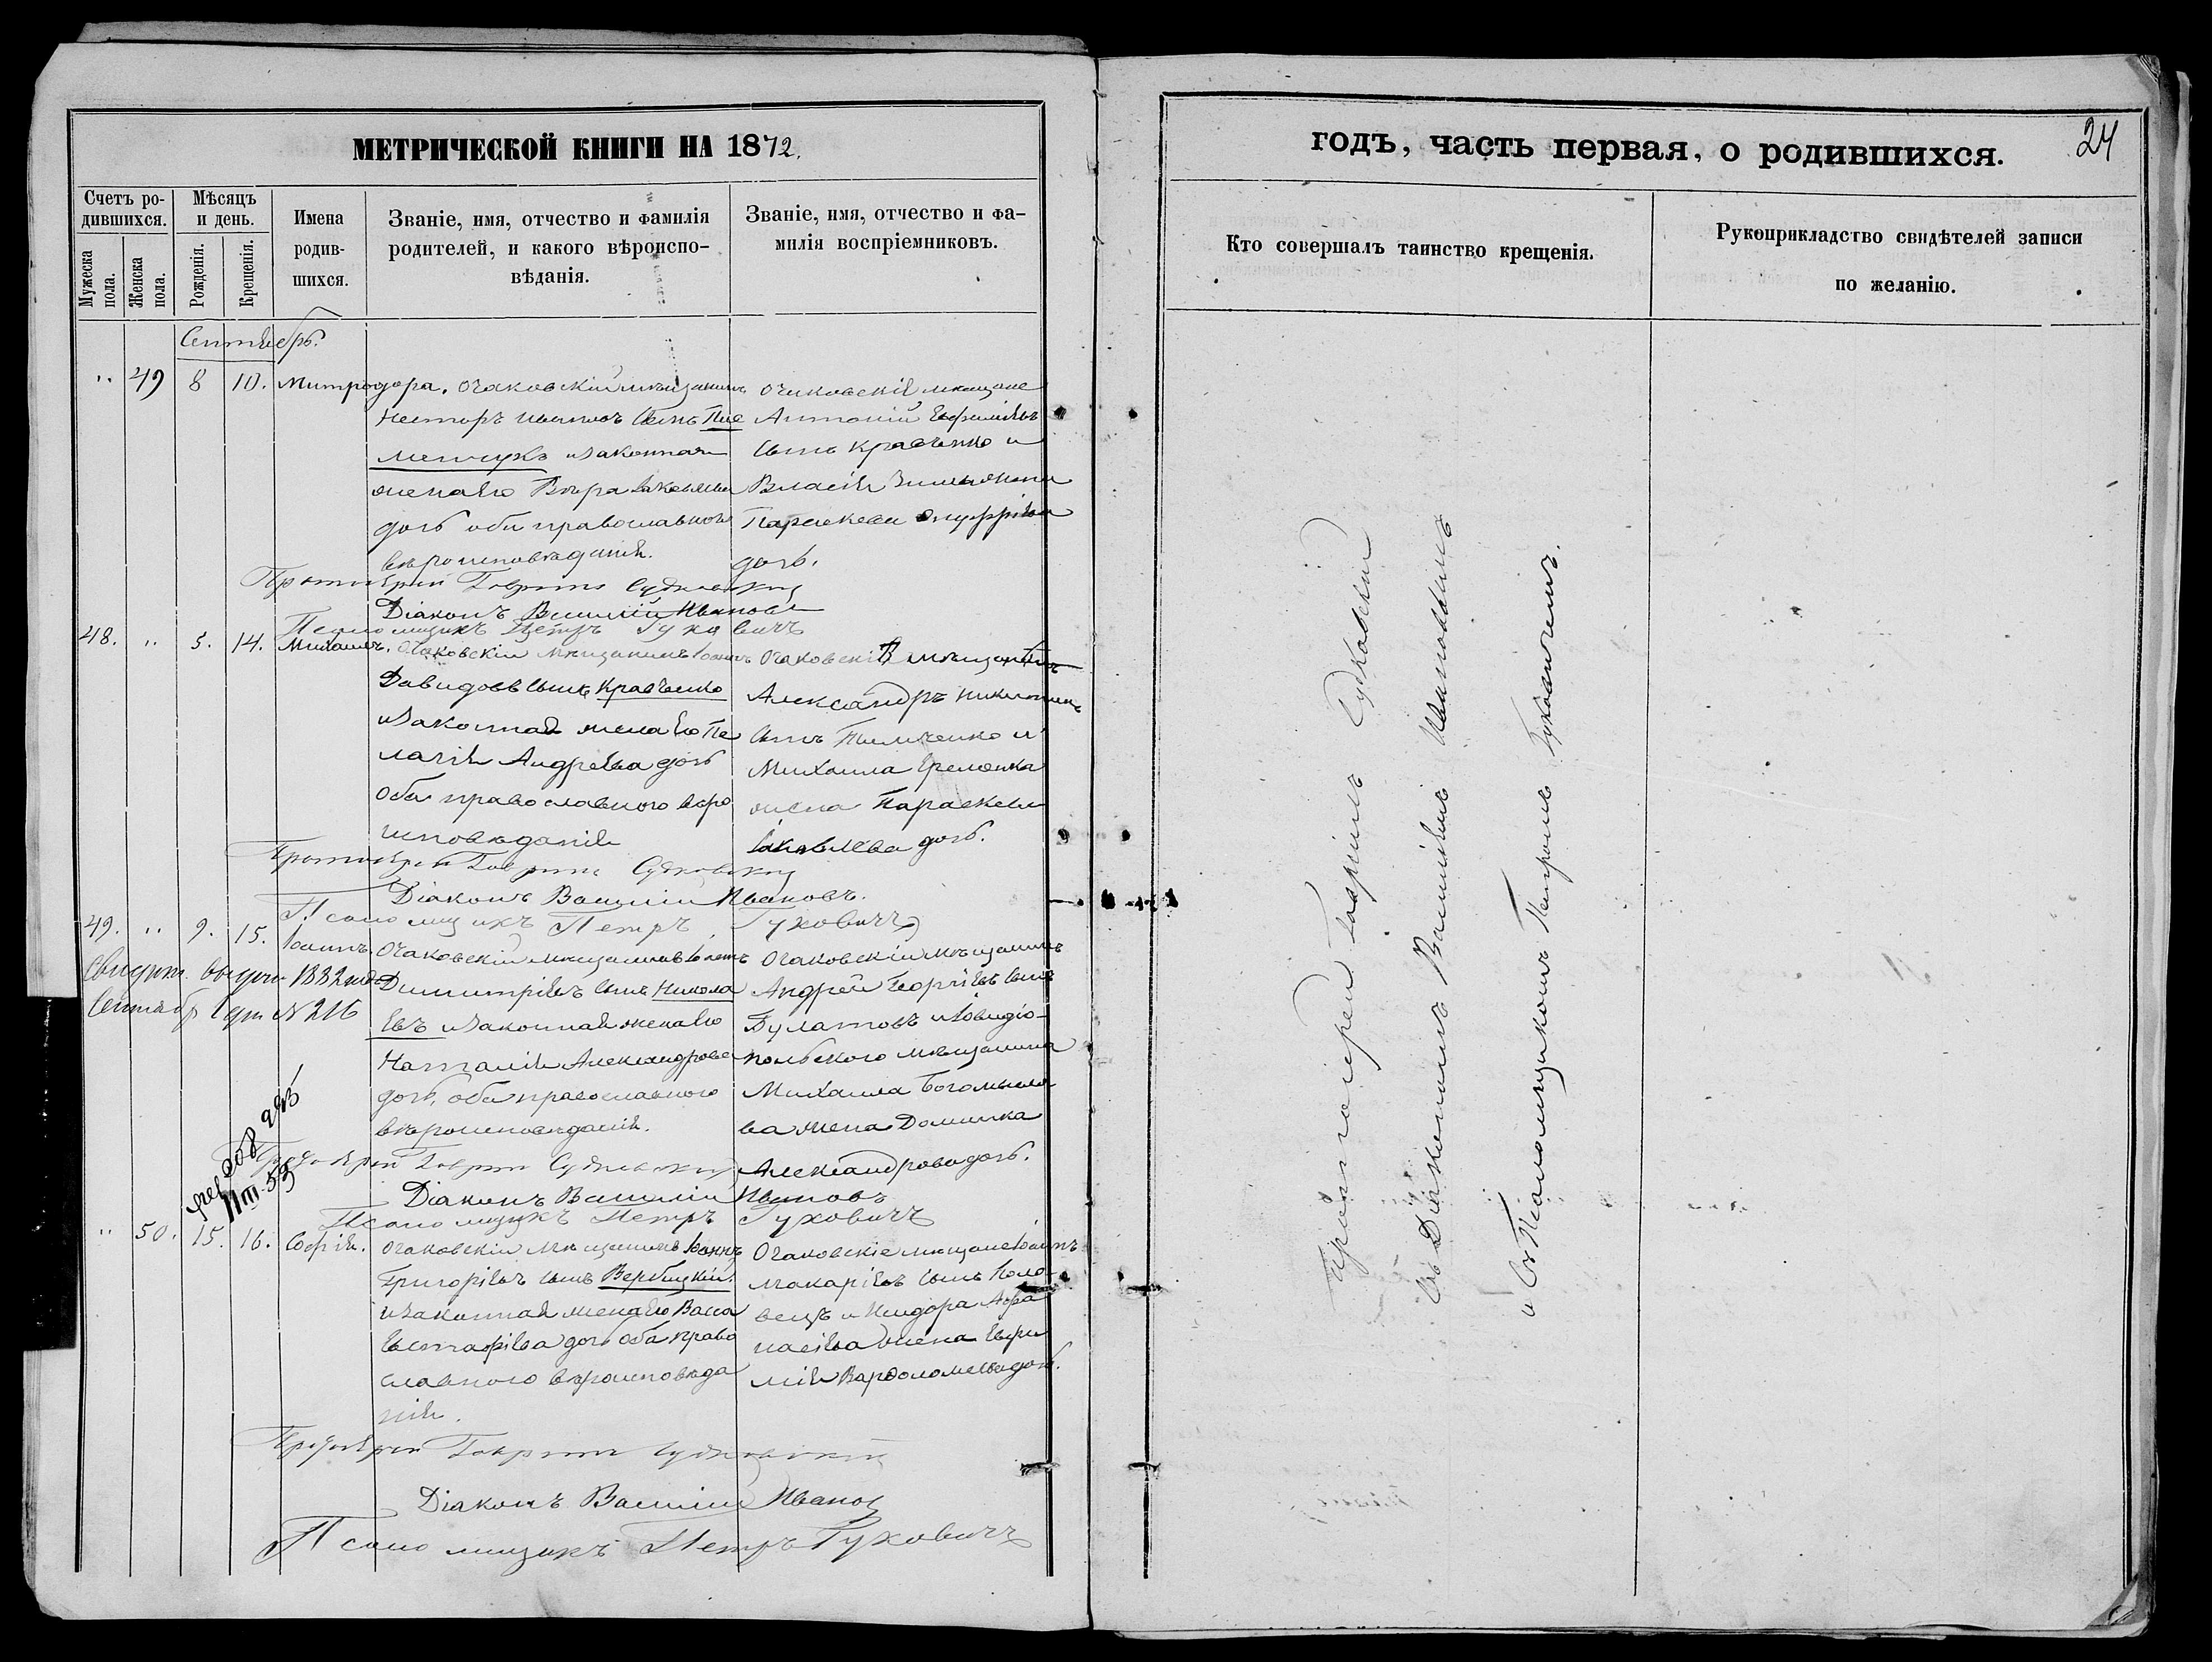 МЕТРИЧЕСКОЙ КНИГИ НА 1872.
Счетъ родившихся.
Мужеска пола.
Женска пола.
Мѣсяцъ и день.
Рожденія.
Крещенія.
Имена
родив-
шихся.
Званіе, имя, отчество и фамилія
родителей, и какого вѣроиспо-
вѣданія.
Званіе, имя, отчество и фа-
милія воспріемниковъ.
Сентябрь.
" 49 8 10. Митродора.
Очаковскій мѣщанинъ
Несторъ Ивановъ сынъ
и законная
жена его Вѣра Іаковлева
дочь оба православнаго
вѣроисповѣданія.
Очаковскіе мѣщане
Антоній Ефиміевъ
сынъ Кравченко и
Параскева Онуфріева
дочь.
Протоіерей Гавріилъ Судковскій
Діаконъ Василій Ивановъ
Псаломщикъ Петръ Гуковичъ
48. " 5. 14. Михаилъ.
Очаковскій мѣщанинъ Іоаннъ
Давидовъ сынъ Кравченко
и законная жена его Пе
лагія Андреева дочь
оба православнаго вѣро
исповѣданія
Очаковскій мѣщанинъ
Александръ Никитинъ
сынъ Тимченко и
Михаила Еременка
жена Параскева
Іаковлева дочь.
Протоіерей Гавріилъ Судковскій
Діаконъ Василій Ивановъ.
Псаломщикъ Петръ Гуковичъ
49. " 9. 15. Іоаннъ.
Свидѣт. выдан 1882 года
Сентябр 1 дня №216
Очаковскій мѣщанинъ
Димитріевъ сынъ Никола
евъ и законная жена его
Наталія Александрова
дочь, оба православнаго
вѣроисповѣданія.
Очаковскій мѣщанинъ
Андрей Георгіевъ сынъ
Булатовъ и Овидіо-
польскаго мѣщанина
Михаила Богомыло
ва жена Домника
Александрова дочь.
Протоіерей Гавріилъ Судковскій
Діаконъ Василій Ивановъ
Псаломщикъ Петръ Гуковичъ
" 50. 15. 16. Софія.
Очаковскій мѣщанинъ Іоаннъ
Григоріевъ сынъ Вербицкій
и законная жена его Васса
Евстафіева дочь оба право
славнаго вѣроисповѣда
нія.
Очаковскіе мѣщане Іоаннъ
Макаріевъ сынъ Коло
вецъ и Исидора Афа
насіева жена Евфи
мія Варѳоломеева дочь.
Протоіерей Гавріилъ Судковскій
Діаконъ Василій Ивановъ
Псаломщикъ Петръ Гуковичъ
годъ, часть первая, о родившихся.
24
Кто совершалъ таинство крещенія.
Рукоприкладство свидѣтелей записи
по желанію.
Протоіерей Гавріилъ Судковскій
съ Діакономъ Василіемъ Ивановымъ
и съ Псаломщикомъ Петромъ Гуковичемъ.